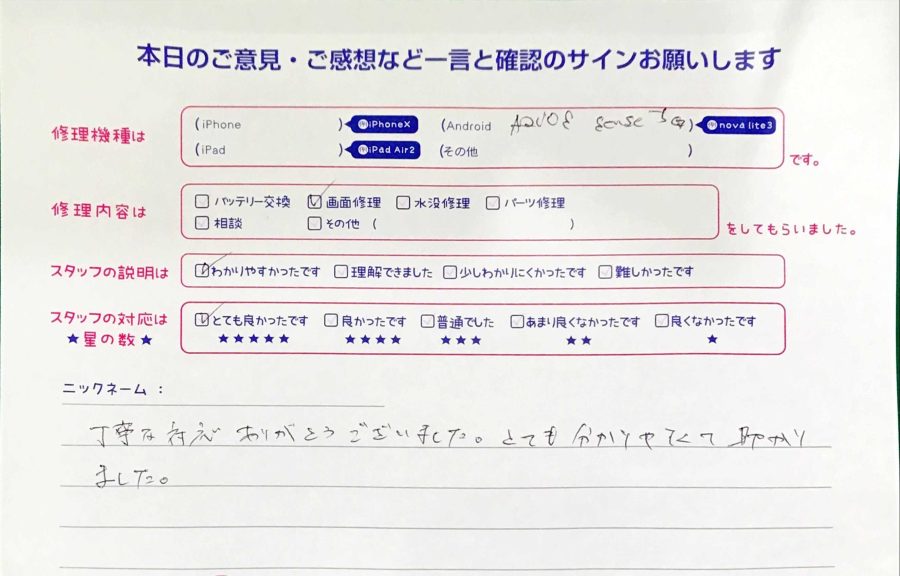 本日のご意見・ご感想など一言と確認のサインお願いします
修理機種は
(iPhone ) 例iPhoneX (Android AQUOS sense 5G) 例nova lite3
(iPad ) 例iPad Air2 (その他 )
です。
修理内容は
バッテリー交換 画面修理 水没修理 パーツ修理
相談 その他 ( )
をしてもらいました。
スタッフの説明は わかりやすかったです 理解できました 少しわかりにくかったです 難しかったです
スタッフの対応は とても良かったです 良かったです 普通でした あまり良くなかったです 良くなかったです
★星の数★ ★★★★★ ★★★★ ★★★ ★★ ★
ニックネーム：
丁寧な対応ありがとうございました。とても分かりやすくて助かり
ました。